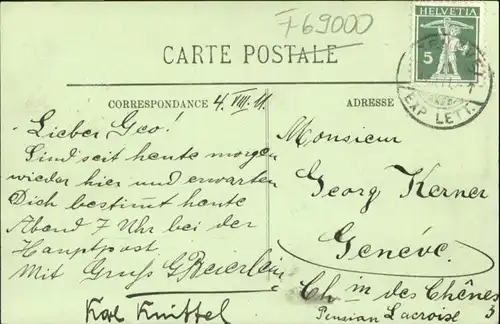 F69000
HELVETIA
5
CARTE POSTALE
EXP. LETT.
CORRESPONDANCE 4. VIII. 11.
ADRESSE
Lieber Geo!
Sind seit heute morgen
wieder hier und erwarten
Dich bestimmt heute
Abend 7 Uhr bei der
Hauptpost
Mit Gruss G. Beierlein
Karl Knittel
Monsieur
Georg Kerner
Genève.
Ch in des Chênes
Pension Lacroix 3